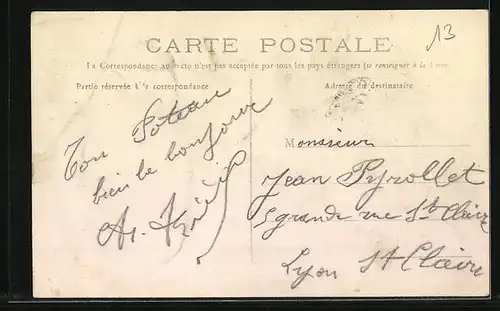 13
CARTE POSTALE
La Correspondance au recto n'est pas acceptée par tous les pays étrangers (se renseigner à la Poste)
Partie réservée à la correspondance
Adresse du destinataire
Ton Poteau
bien le bonjour
A.
Monsieur
Jean Pyrollet
grande rue St Claire
Lyon St Claire